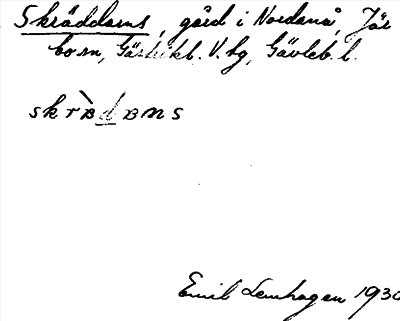 Skräddarns, gård i Nordanå, Jär
bo sn, Gästrikl. V. hg, Gävleb. l.
skrädans
Emil Lenhagen 1930